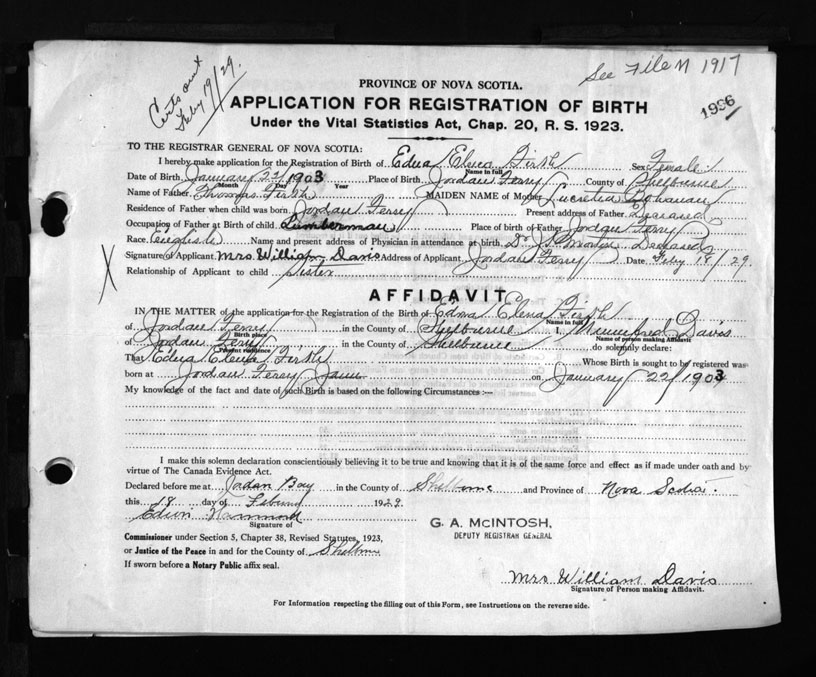 See File M 1917
Certs out
Feby 19/29.
PROVINCE OF NOVA SCOTIA.
1996
APPLICATION FOR REGISTRATION OF BIRTH
Under the Vital Statistics Act, Chap. 20, R. S. 1923.
TO THE REGISTRAR GENERAL OF NOVA SCOTIA:
I hereby make application for the Registration of Birth of Edna Elena Firth Sex Female
Name in full
Date of Birth January 22/1903 Place of Birth Jordan Ferry County of Shelburne
Month Day Year
Name of Father Thomas Firth MAIDEN NAME of Mother Lucretia
Residence of Father when child was born Jordan Ferry Present address of Father Deceased
Occupation of Father at Birth of child Lumberman Place of birth of Father Jordan Ferry
Race English Name and present address of Physician in attendance at birth Dr J. Morton Deceased
Signature of Applicant Mrs. William Davis Address of Applicant Jordan Ferry Date Feby 18/29.
X
Relationship of Applicant to child Sister
AFFIDAVIT
IN THE MATTER of the application for the Registration of the Birth of Edna Elena Firth
Name in full
of Jordan Ferry in the County of Shelburne I, Winnifred Davis
Birth place Name of person making Affidavit
of Jordan Ferry in the County of Shelburne do solemnly declare:
Present residence
That Edna Elena Firth Whose Birth is sought to be registered was
born at Jordan Ferry on January 22/1903
My knowledge of the fact and date of such Birth is based on the following Circumstances :—
I make this solemn declaration conscientiously believing it to be true and knowing that it is of the same force and effect as if made under oath and by
virtue of The Canada Evidence Act.
Declared before me at Jordan Bay in the County of Shelburne and Province of Nova Scotia.
this 18 day of February 1929
Edwin Hammond
Signature of
G. A. McINTOSH,
DEPUTY REGISTRAR GENERAL
Commissioner under Section 5, Chapter 38, Revised Statutes, 1923,
or Justice of the Peace in and for the County of Shelburne
If sworn before a Notary Public affix seal.
Mrs William Davis
Signature of Person making Affidavit.
For Information respecting the filling out of this Form, see Instructions on the reverse side.